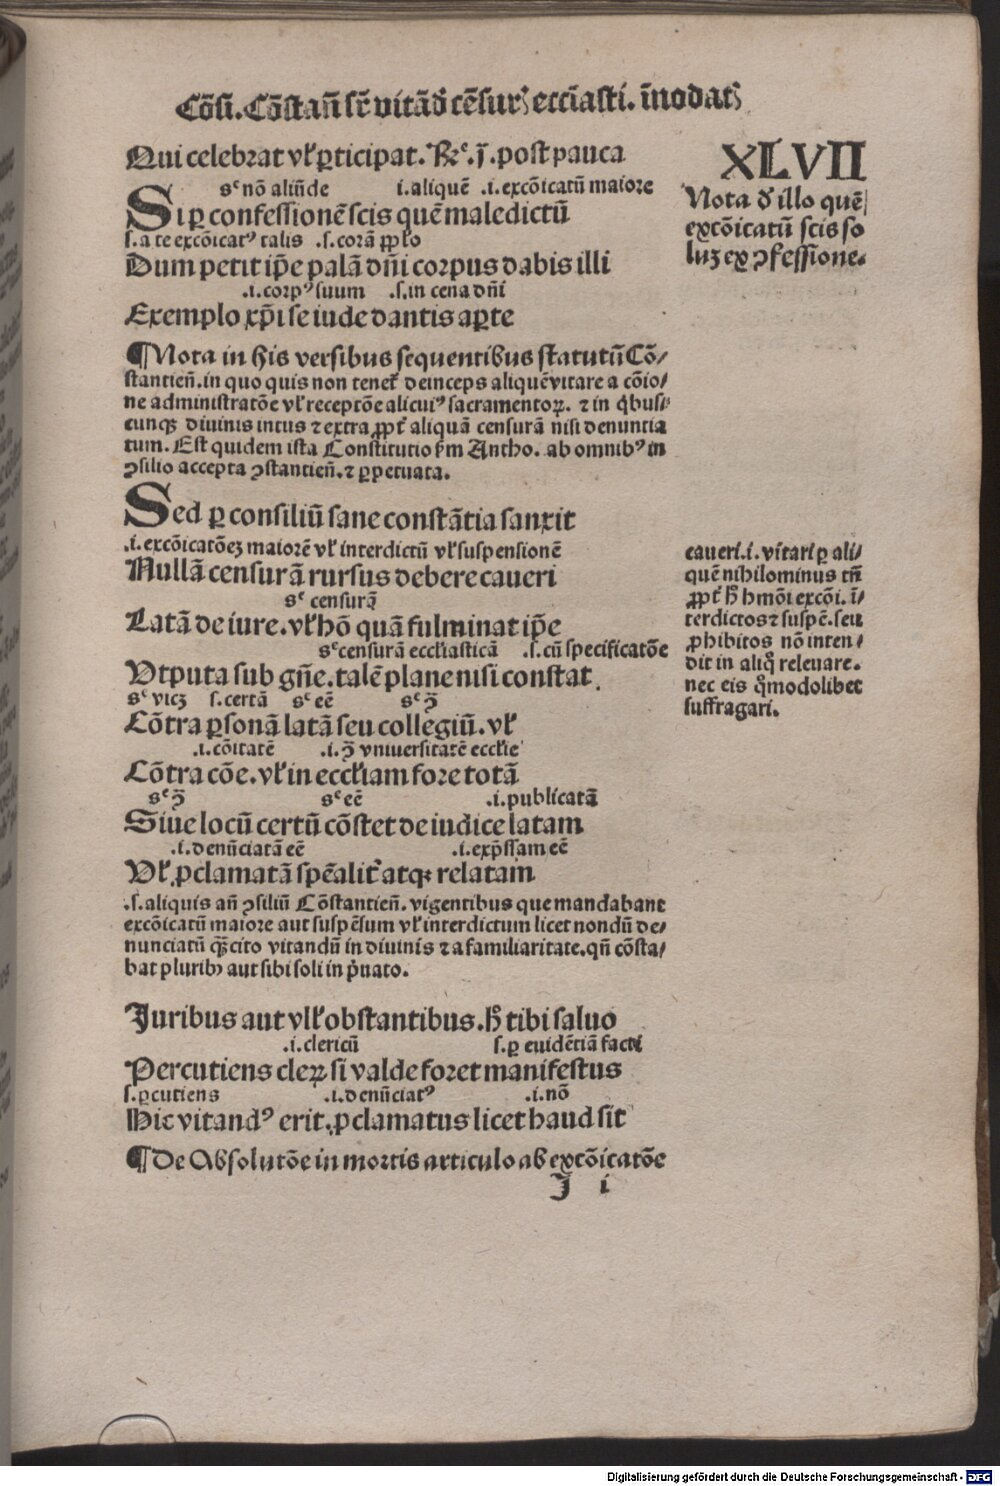 Cōsi. Cōstan̄ sr̄ vitād̄ cēsurꝭ eccīasti. īnodatꝭ
XLVII
Qui celebrat vl̕ ꝑticipat. Rͤ. ī. post pauca
sͨ nō aliūde i. aliquē .i. excōicatū maiore
Si ꝑ confessionē scis quē maledictū
s. a te excōicatꝰ talis .s. corā ꝓplo
Dum petit ip̄e palā dn̄i corpus dabis illi
.i. corpꝰ suum .s. in cena dn̄i
Exemplo xp̄i se iude dantis aꝑte
Nota d̄ illo quē
excōicatū scis so
luꝫ ex ꝯfessione.
¶ Nota in his versibus sequentibus statutū Cō/
stantien̄. in quo quis non tenet̕ deinceps aliquē vitare a cōio/
ne administratōe vl̕ receptōe alicuiꝰ sacramentoꝝ. ⁊ in qͥbus/
cunqꝫ diuinis intus ⁊ extra ꝓpt̕ aliquā censurā nisi denuntia
tum. Est quidem ista Constitutio ẜm Antho. ab omnibꝰ in
ꝯsilio accepta ꝯstantien̄. ⁊ ꝑpetuata.
Sed ꝑ consiliū sane constātia sanxit
.i. excōicatōeꝫ maiorē vl̕ interdictū vl̕ suspensionē
Nullā censurā rursus debere caueri
sͨ censurā
Latā de iure. vl̕ hō quā fulminat ip̄e
sͨ censurā eccl̕iasticā .s. cū specificatōe
Utputa sub gn̄e. talē plane nisi constat.
sͨ vicꝫ s. certā sͨ eē sͨ ꝯ̄
Cōtra ꝑsonā latā seu collegiū. vl̕
.i. cōitatē .i. ꝯ̄ vniuersitatē eccl̕ie
Cōtra cōe. vl̕ in eccl̕iam fore totā
sͨ ꝯ̄ sͨ eē .i. publicatā
Siue locū certū cōstet de iudice latam
.i. denūciatā eē .i. exp̄ssam eē
Vl̕ ꝓclamatā spēalit̕ atqꝫ relatam
caueri .i. vitari ꝑ ali/
quē nihilominus tn̄
ꝓpt̕ h̄ hmōi excōi. ī/
terdictos ⁊ suspē. seu
ꝓhibitos nō inten/
dit in aliqͦ releuare.
nec eis qͦmodolibet
suffragari.
.s. aliquis an̄ ꝯsiliū Cōstantien̄. vigentibus que mandabant
excōicatū maiore aut suspēsum vl̕ interdictum licet nondū de/
nunciatū qͣꝫcito vitandū in diuinis ⁊ a familiaritate. qn̄ cōsta/
bat pluribꝫ aut sibi soli in pͥuato.
Juribus aut vll̕ obstantibus. h̄ tibi saluo
.i. clericū s. ꝑ euidētiā facti
Percutiens cleꝝ si valde foret manifestus
s. ꝑcutiens .i. denūciatꝰ .i. nō
Hic vitandꝰ erit. ꝓclamatus licet haud sit
¶ De Absolutōe in mortis articulo ab excōicatōe
J i
Digitalisierung gefördert durch die Deutsche Forschungsgemeinschaft - DFG